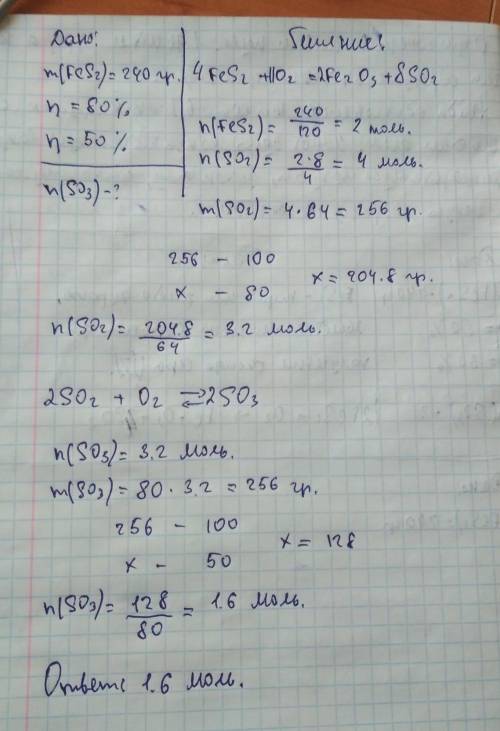 Дано:
m(FeS2) = 240 гр.
η = 80%
η = 50%
n(SO3) - ?
4FeS2 + 11O2 = 2Fe2O3 + 8SO2
n(FeS2) = 240/120 = 2 моль.
n(SO2) = 2·8/4 = 4 моль.
m(SO2) = 4·64 = 256 гр.
256 – 100
x – 80
x = 204.8 гр.
n(SO2) = 204.8/64 = 3.2 моль.
2SO2 + O2 ⇄ 2SO3
n(SO3) = 3.2 моль.
m(SO3) = 80 · 3.2 = 256 гр.
256 – 100
x – 50
x = 128
n(SO3) = 128/80 = 1.6 моль.
Ответ: 1.6 моль.